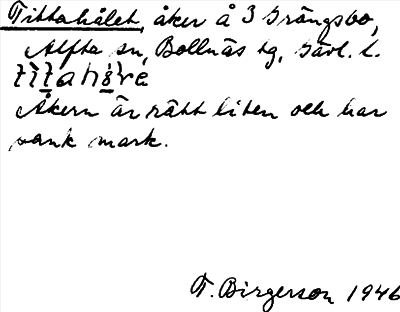 Tittahålet, åker å 3 Grängsbo,
Alfta sn, Bollnäs tg, Gävl. l.
Åkern är rätt liten och har
vank mark.
T. Birgerson 1946